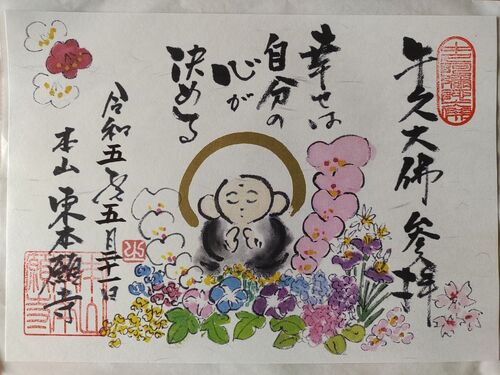 牛久大佛 参拝
幸せは
自分の
心が
決める
令和五年五月二十一日
本山 東本願寺